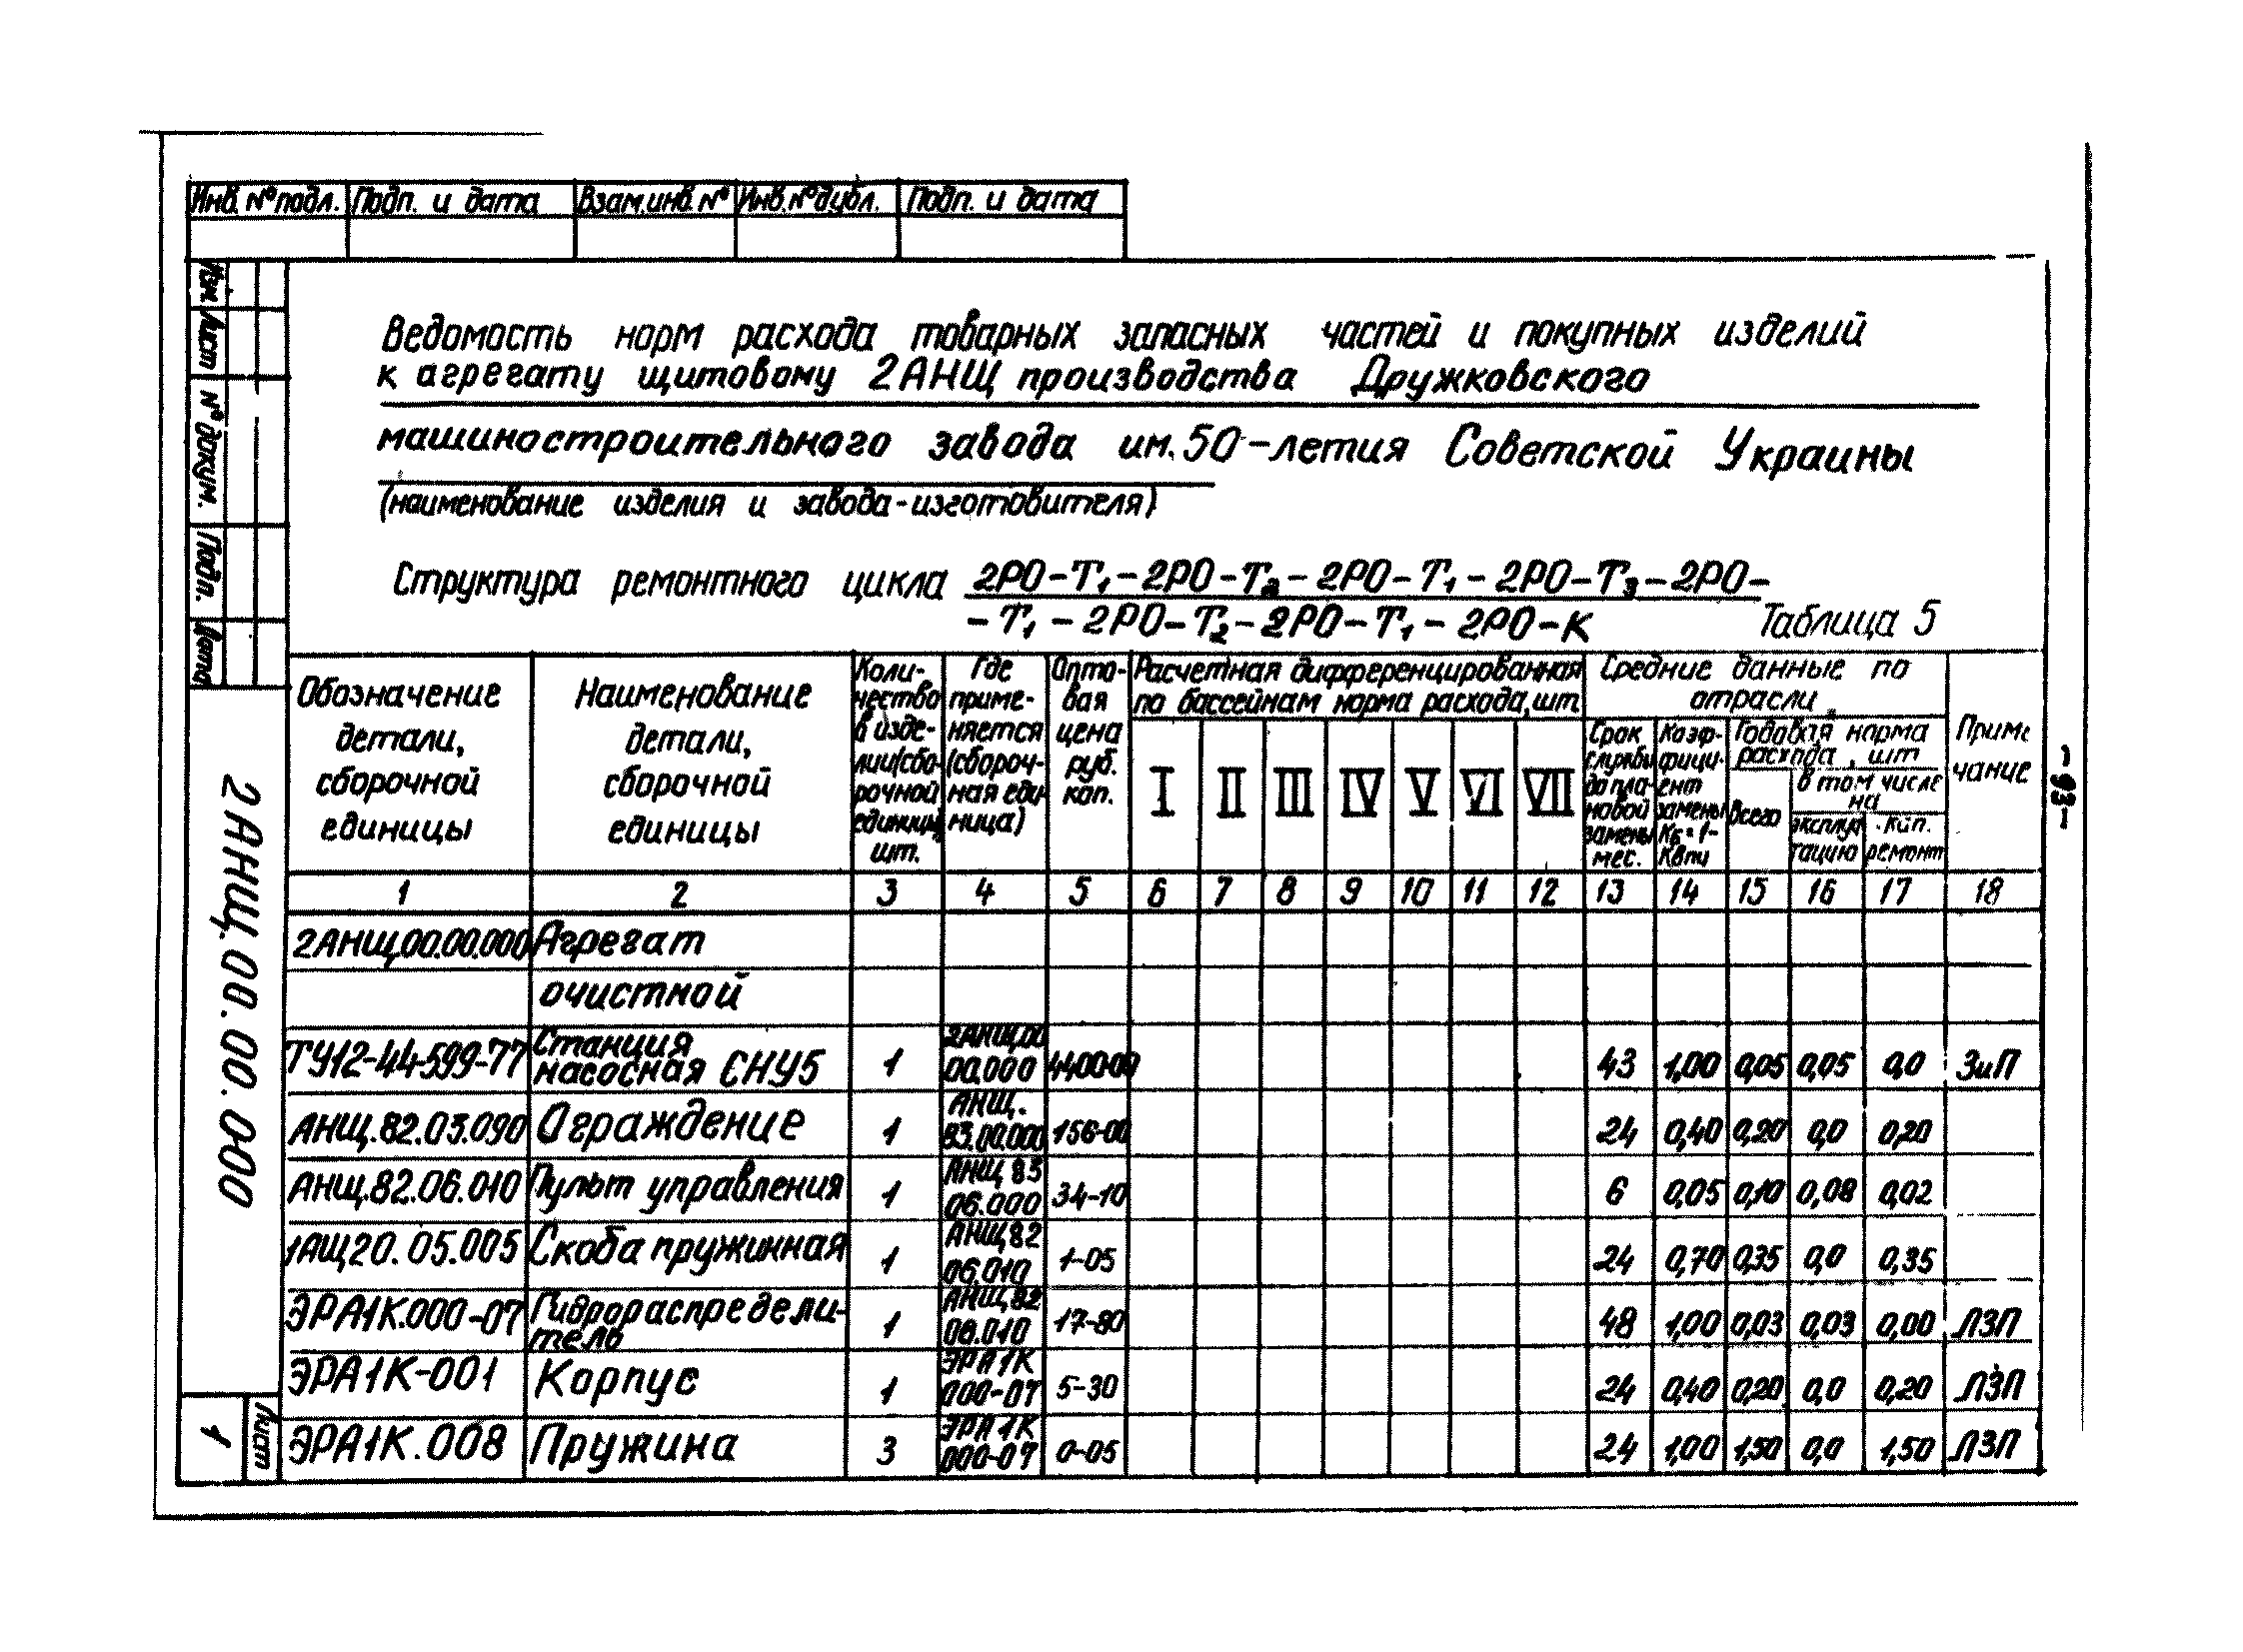 Инв. № подл. Подп. и дата Взам.инв. № Инв. № дубл. Подп. и дата
Изм. Лист № докум. Подп. Дата
Ведомость норм расхода товарных запасных частей и покупных изделий
к агрегату щитовому 2АНЩ производства Дружковского
машиностроительного завода им. 50-летия Советской Украины
(наименование изделия и завода-изготовителя)
Структура ремонтного цикла 2РО-Т1-2РО-Т2-2РО-Т1-2РО-Т3-2РО-
-Т1-2РО-Т2-2РО-Т1-2РО-К Таблица 5
Обозначение детали, сборочной единицы
Наименование детали, сборочной единицы
Количество в изделии/сборочной единицы, шт.
Где применяется (сборочная единица)
Оптовая цена руб. коп.
Расчетная дифференцированная по бассейнам норма расхода, шт.
I II III IV V VI VII
Средние данные по отрасли
Срок службы до плановой замены мес.
Коэффициент замены Кв=1-Квпи
Годовая норма расхода, шт
Всего
в том числе на
эксплуатацию
кап. ремонт
Примечание
1 2 3 4 5 6 7 8 9 10 11 12 13 14 15 16 17 18
2АНЩ.00.00.000 Агрегат
очистной
ТУ12-44-599-77 Станция насосная СНУ5 1 2АНЩ.00 00.000 4400-00 43 1,00 0,05 0,05 0,0 ЗиП
АНЩ.82.03.090 Ограждение 1 АНЩ. 83.00.000 156-00 24 0,40 0,20 0,0 0,20
АНЩ.82.06.010 Пульт управления 1 АНЩ 83 06.000 34-10 6 0,05 0,10 0,08 0,02
1АЩ20.05.005 Скоба пружинная 1 АНЩ 82 06.010 1-05 24 0,70 0,35 0,0 0,35
ЭРА1К.000-07 Гидрораспределитель 1 АНЩ.82 06.010 17-80 48 1,00 0,03 0,03 0,00 ЛЗП
ЭРА1К-001 Корпус 1 ЭРА1К 000-07 5-30 24 0,40 0,20 0,0 0,20 ЛЗП
ЭРА1К.008 Пружина 3 ЭРА1К 000-07 0-05 24 1,00 1,50 0,0 1,50 ЛЗП
2АНЩ.00.00.000
Лист
1
-93-